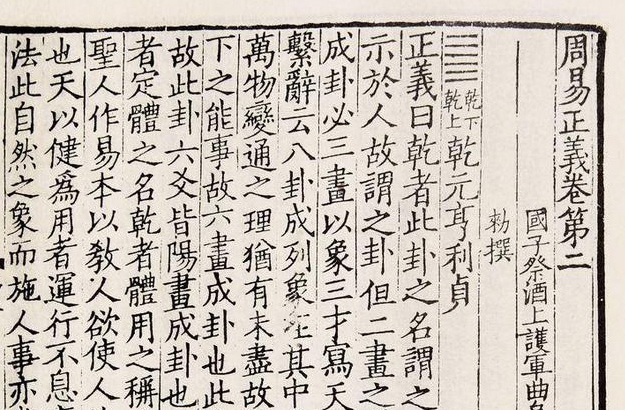 周易正義卷第二
國子祭酒上護軍曲
勑撰
䷀乾下乾上乾元亨利貞
正義曰乾者此卦之名謂之
示於人故謂之卦但二畫之
成卦必三畫以象三才寫天
繫辭云八卦成列象在其中
萬物變通之理猶有未盡故
下之能事故六畫成卦也此
故此卦六爻皆陽畫成卦也
者定體之名乾者體用之稱
聖人作易本以敎人欲使人
也天以健爲用者運行不息
法此自然之象而施人事亦